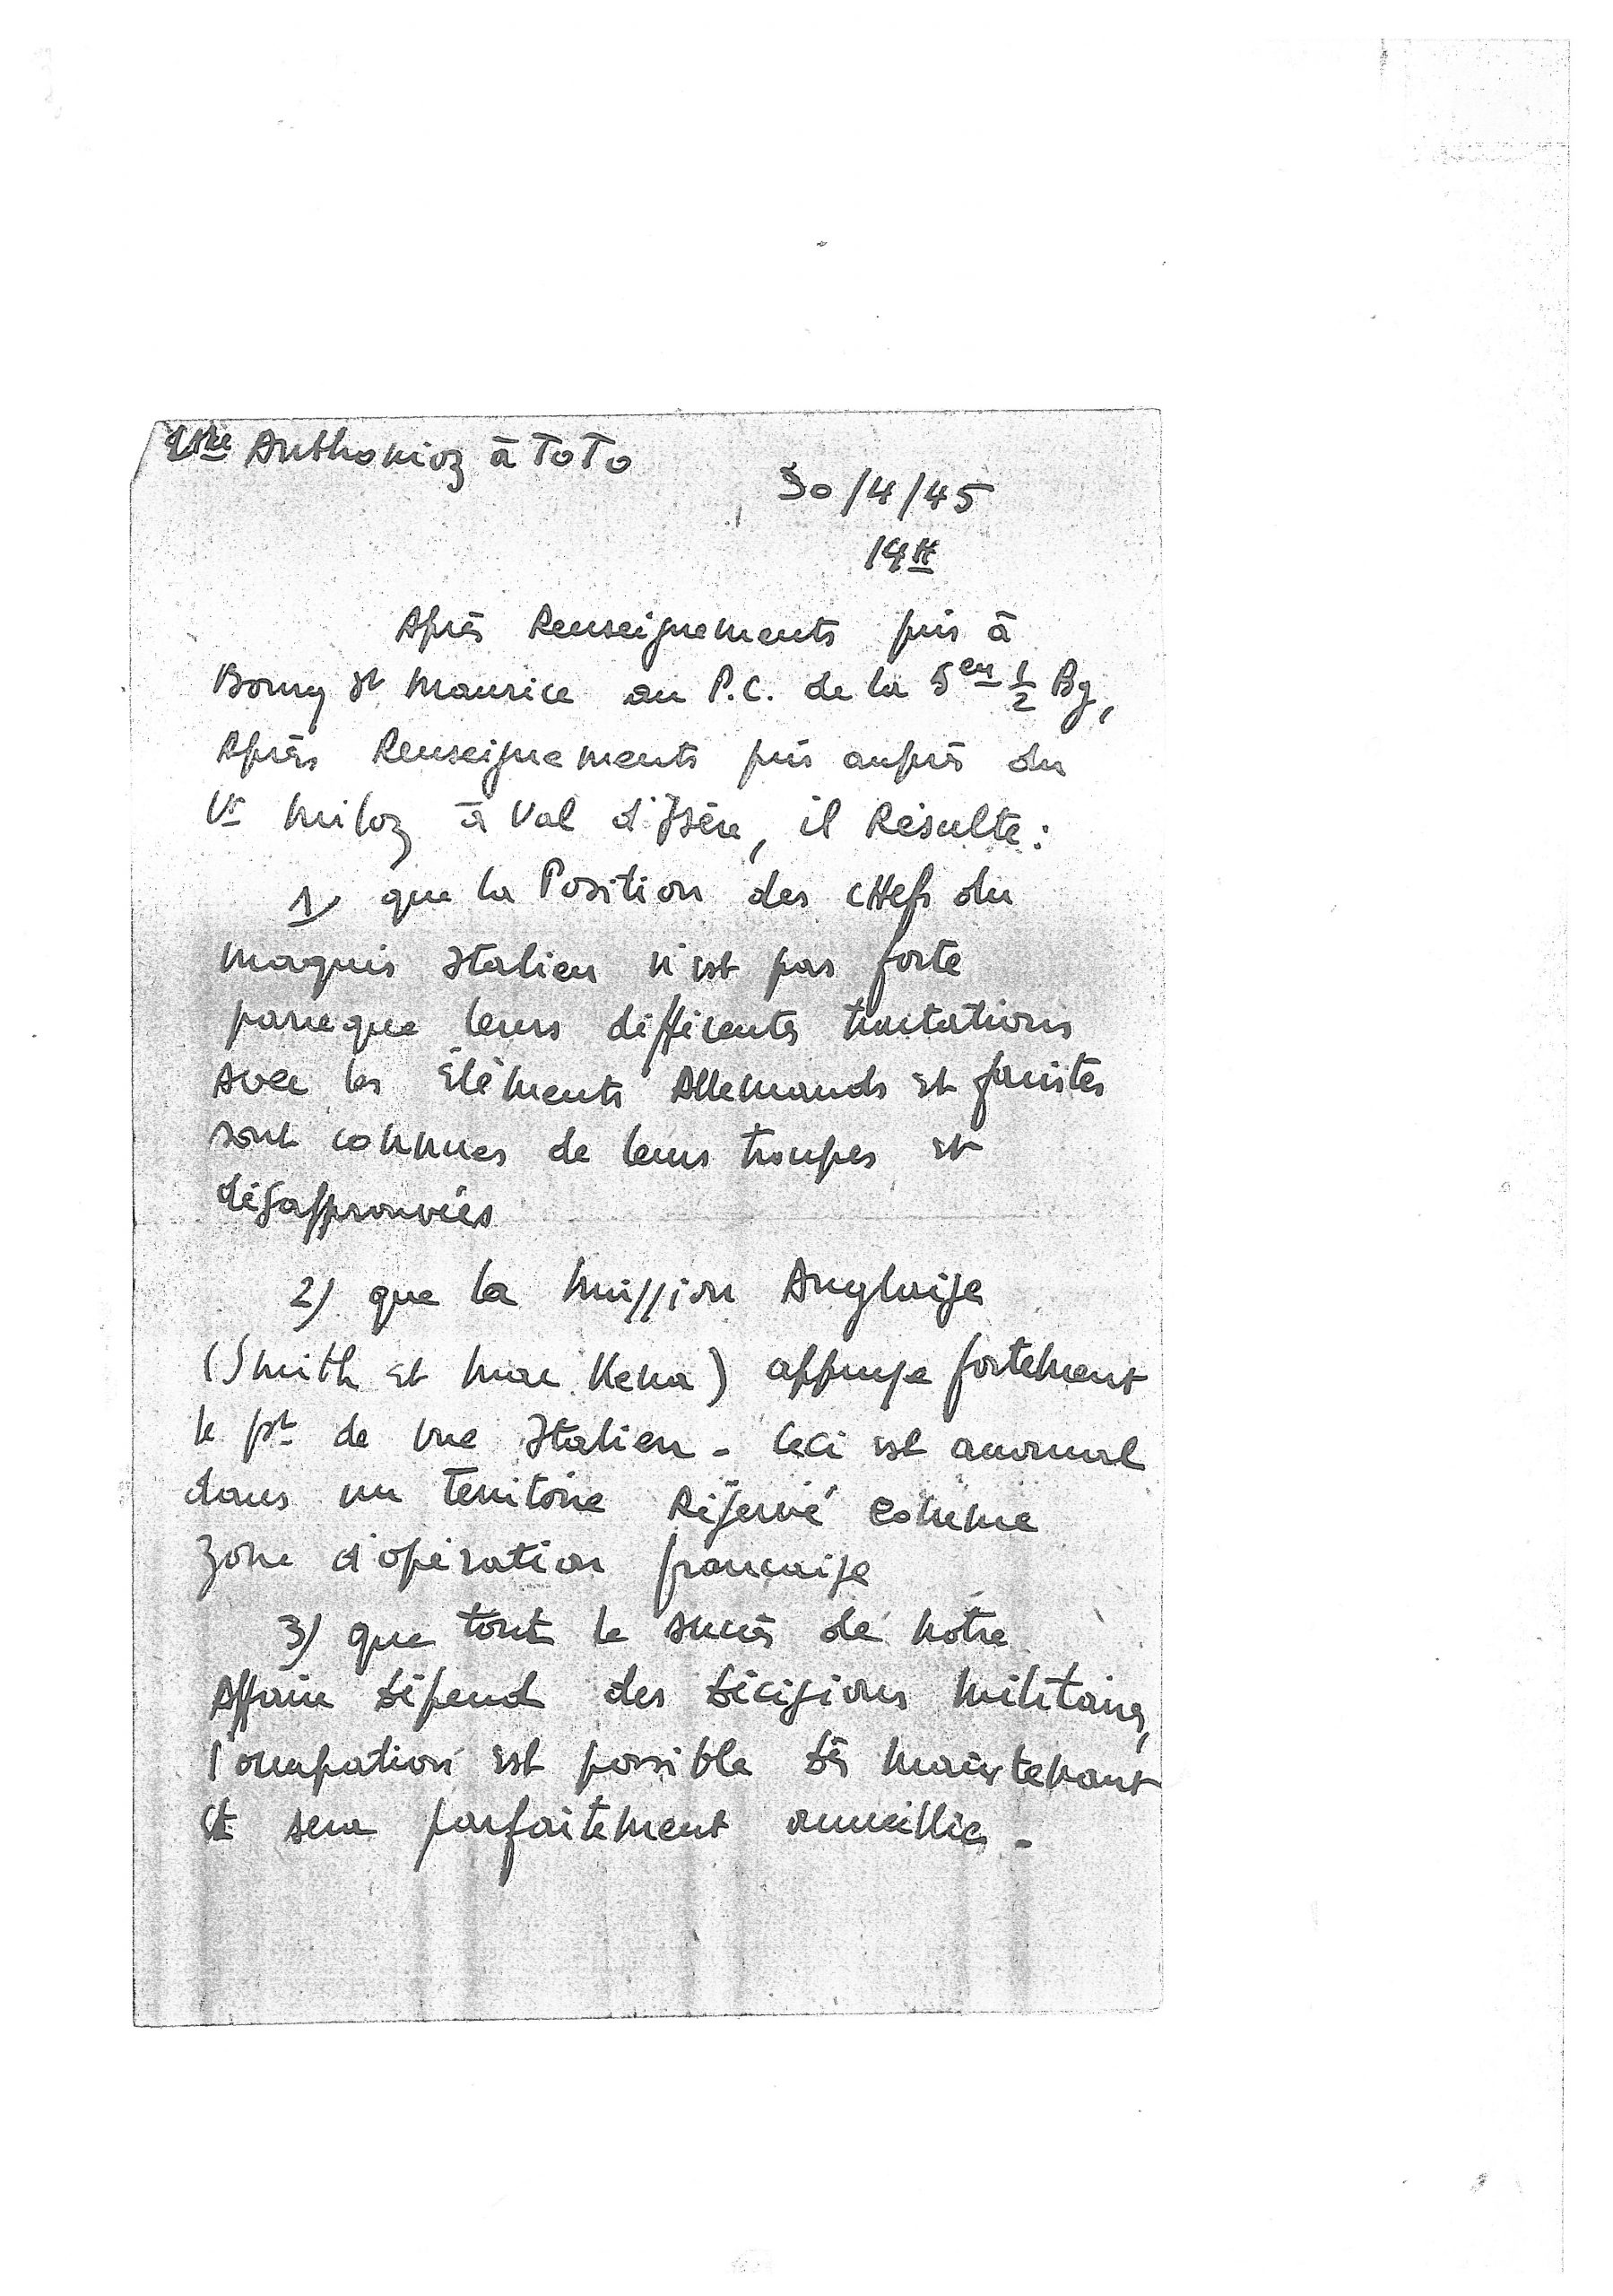 Anthonioz à ToTo
30/4/45
19H
Après Renseignements pris à
Bourg St Maurice au P.C. de la 5em 1/2 Bg,
Après Renseignements pris auprès du
à Val d'Isère, il Résulte:
1) que la Position des CHefs du
maquis Italien n'est pas forte
parceque leurs différentes tractations
avec les Eléments Allemands et fascistes
sont connues de leurs troupes et
désapprouvées
2) que la Mission Anglaise
(Smith et Mac Kena) appuye fortement
le pt de vue Italien - Ceci est anormal
dans un Territoire Réservé comme
zone d'opération française
3) que tout le succès de notre
Affaire dépend des décisions militaires,
l'occupation est possible dès maintenant
et sera parfaitement accueillie -